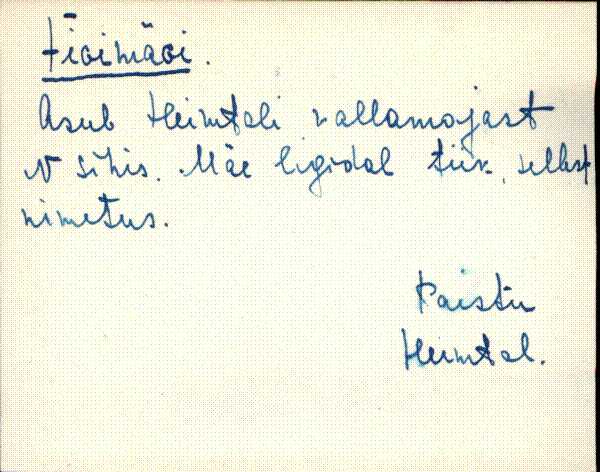 Asub Heimtali vallamajast
N sihis. Mäe ligidal tiik, sellest
nimetus.
Paistu
Heimtal.